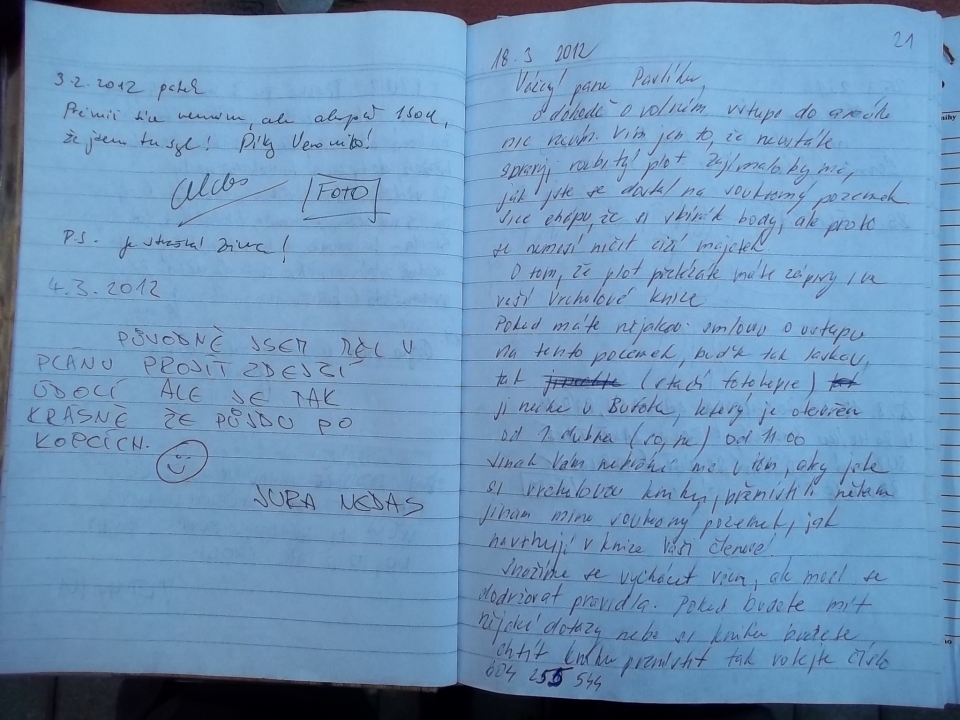 3.2.2012 pátek
že jsem tu byl! Díky Veroniko!
FOTO
P.S. je strašná zima!
4.3.2012
PŮVODNĚ JSEM MĚL V
PLÁNU PROJÍT ZDEJŠÍ
ÚDOLÍ ALE JE TAK
KRÁSNĚ ŽE PŮJDU PO
KOPCÍCH.
JURA NEDAS
21
18.3 2012
Vážený pane Pavlíku,
o dohodě o volném vstupu do areálu
nic nevím. Vím jen to, že neustále
spravuji rozbitý plot zajímalo by mě,
jak jste se dostal na soukromý pozemek
sice chápu, že si sbíráte body, ale proto
se nemusí ničit cizí majetek
O tom, že plot přelézáte máte zápisy i ve
vaší Vrcholové knize
Pokud máte nějakou smlouvu o vstupu
na tento pozemek, buďte tak laskav,
tak (stačí fotokopie)
ji nechte u Bufetu, který je otevřen
od 1. dubna (so, ne) od 11.00
Jinak Vám nebrání nic v tom, aby jste
si vrcholovou knihu přemístili někam
jinam mimo soukromý pozemek, jak
navrhují v knize Vaši členové!
Snažíme se vycházet všem, ale musí se
dodržovat pravidla. Pokud budete mít
nějaké dotazy nebo si knihu budete
chtít knihu přemístit tak volejte číslo
604 255 544